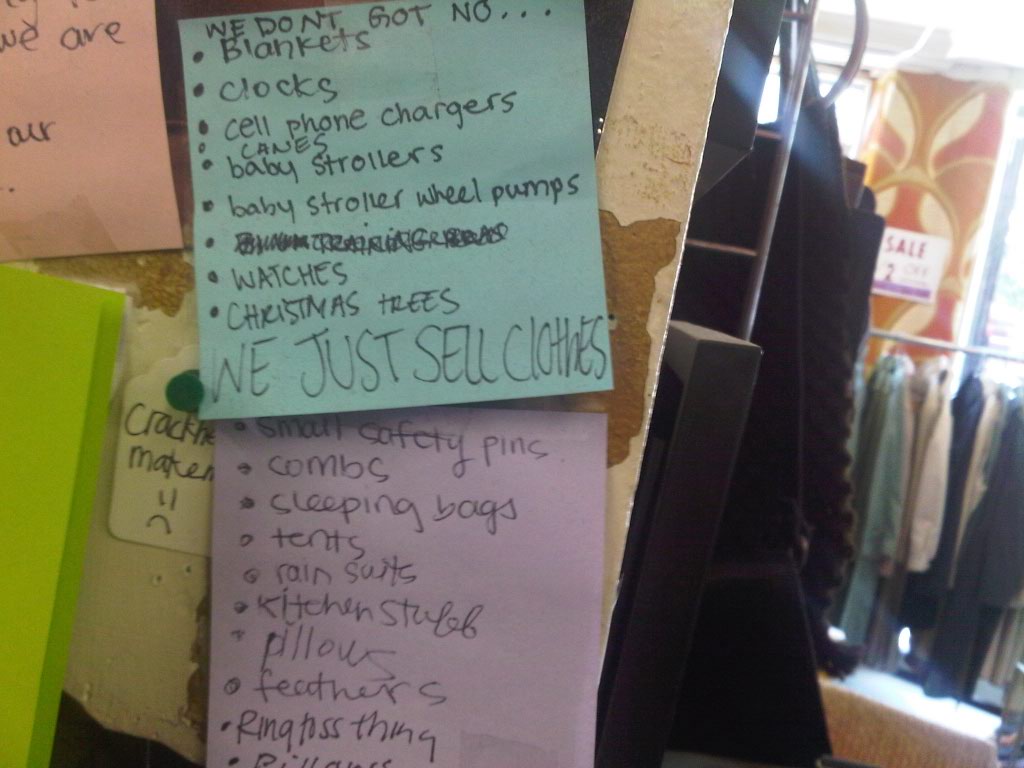 we are
our
..
WE DONT GOT NO...
• Blankets
• clocks
• cell phone chargers
• CANES
• baby strollers
• baby stroller wheel pumps
• WATCHES
• CHRISTMAS TREES
WE JUST SELL CLOTHES
• small safety pins
• combs
• sleeping bags
• tents
• rain suits
• Kitchen stuff
• pillows
• feathers
• Ring toss thing
SALE
2 OFF